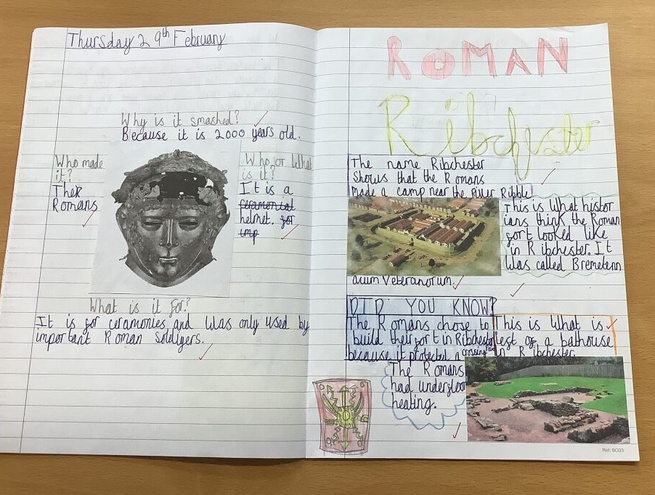 Thursday 29th February
Why is it smashed?
Because it is 2000 years old.
Who made
it?
The
Romans
Who or What
is it?
It is a
ceremonial
helmet. for
imp
What is it for?
It is for ceramonies and was only used by
important Roman Soldigers.
ROMAN
Ribchester
The name Ribchester
Shows that the Romans
made a camp near the River Ribble!
This is what histor
ians think the Roman
fort looked like
in Ribchester. It
was called Bremetenn
acum Veteranorum.
DID YOU KNOW?
The Romans chose to
build their fort in Ribchester
because it protected a crossing
This is What is
lest of a bathouse
in Ribchester
The Romans
had underfloor
heating.